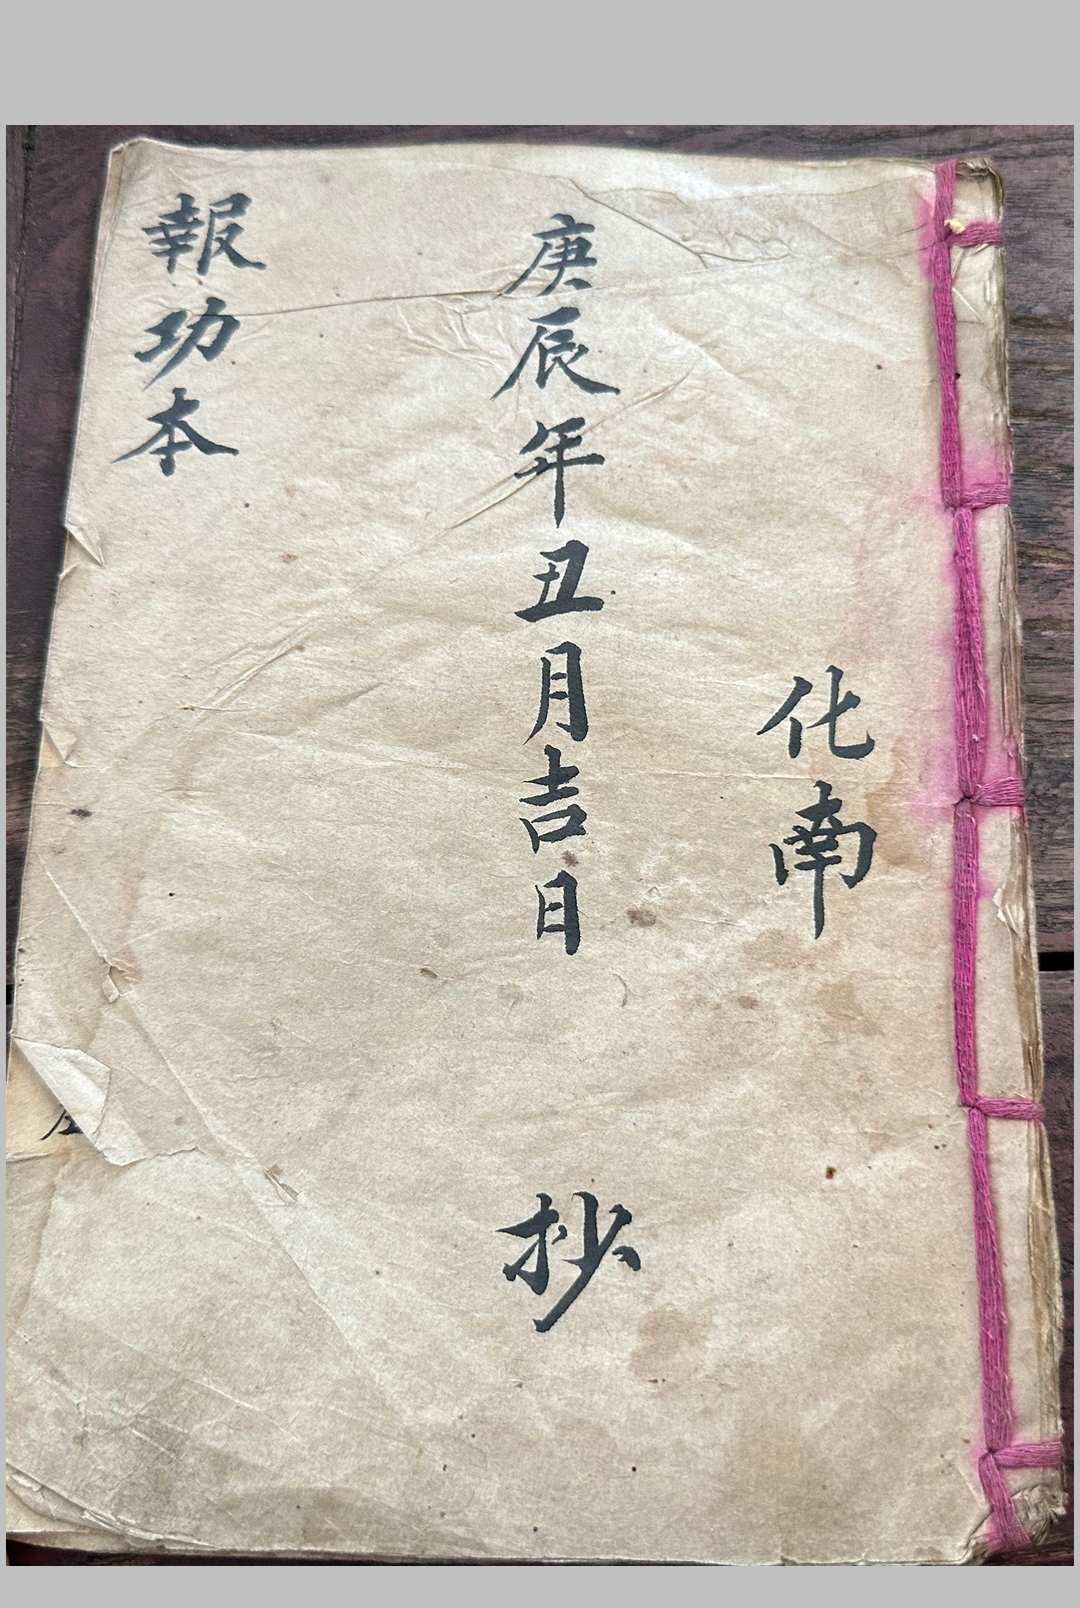 化南
庚辰年丑月吉日 抄
報功本